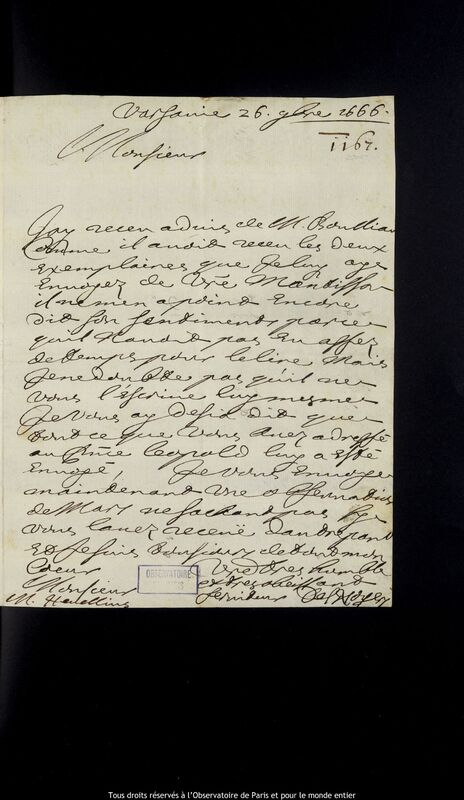 Varsavie 26. 9bre 1666.
1167.
Monsieur
Jay receu advis de M. Boulliau
Comme il avoit receu les deux
exemplaires que Je luy ay
Envoyez de Vre Mantissa
il ne men a point Encore
dit son sentiment parce
quil navoit pas Eu assez
de temps pour le lire Mais
Je ne doubte pas quil ne
vous l'escrive luy mesme
Je vous ay desia dit que
tout ce que vous avez adressé
au Prince Leopold luy a Esté
Envoyé, Je vous Envoye
maintenant Une observation
de Mars ne sachant pas sy
vous lavez receue dautre part
Et Je suis tousjours de tout mon
Coeur Vre tres humble
Monsieur et tres obeissant
M. Hevelius serviteur Des Noyers
OBSERVATOIRE
DE PARIS
Tous droits réservés à l'Observatoire de Paris et pour le monde entier